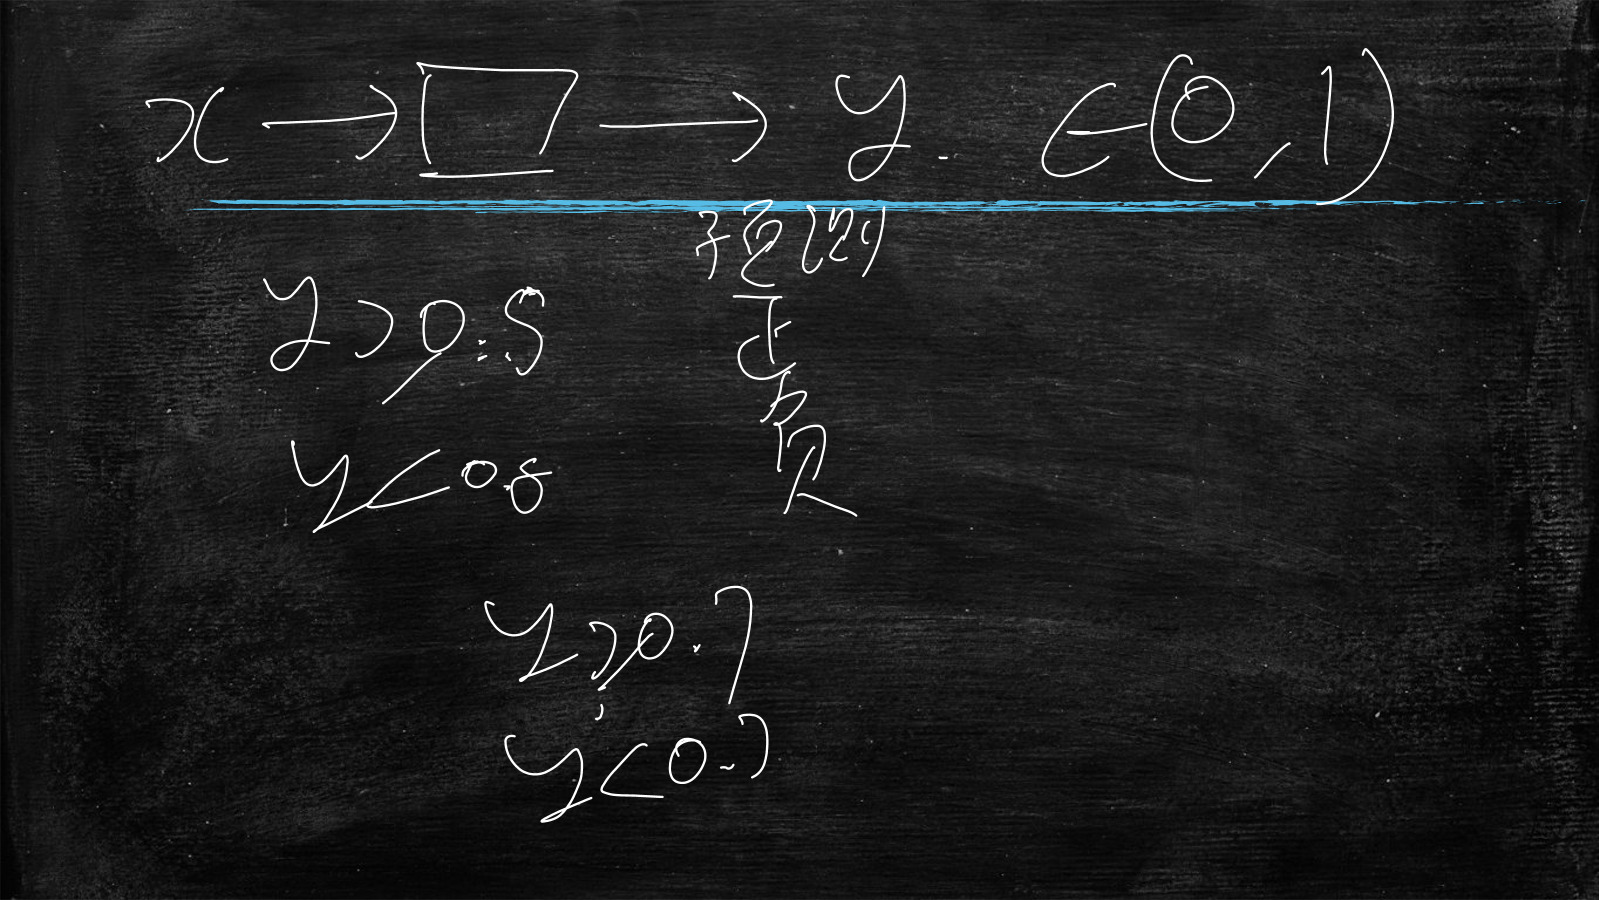 x → □ → y. ∈ (0, 1)
预测
y > 0.5 正
y < 0.5 负
y > 0.7
y < 0.7